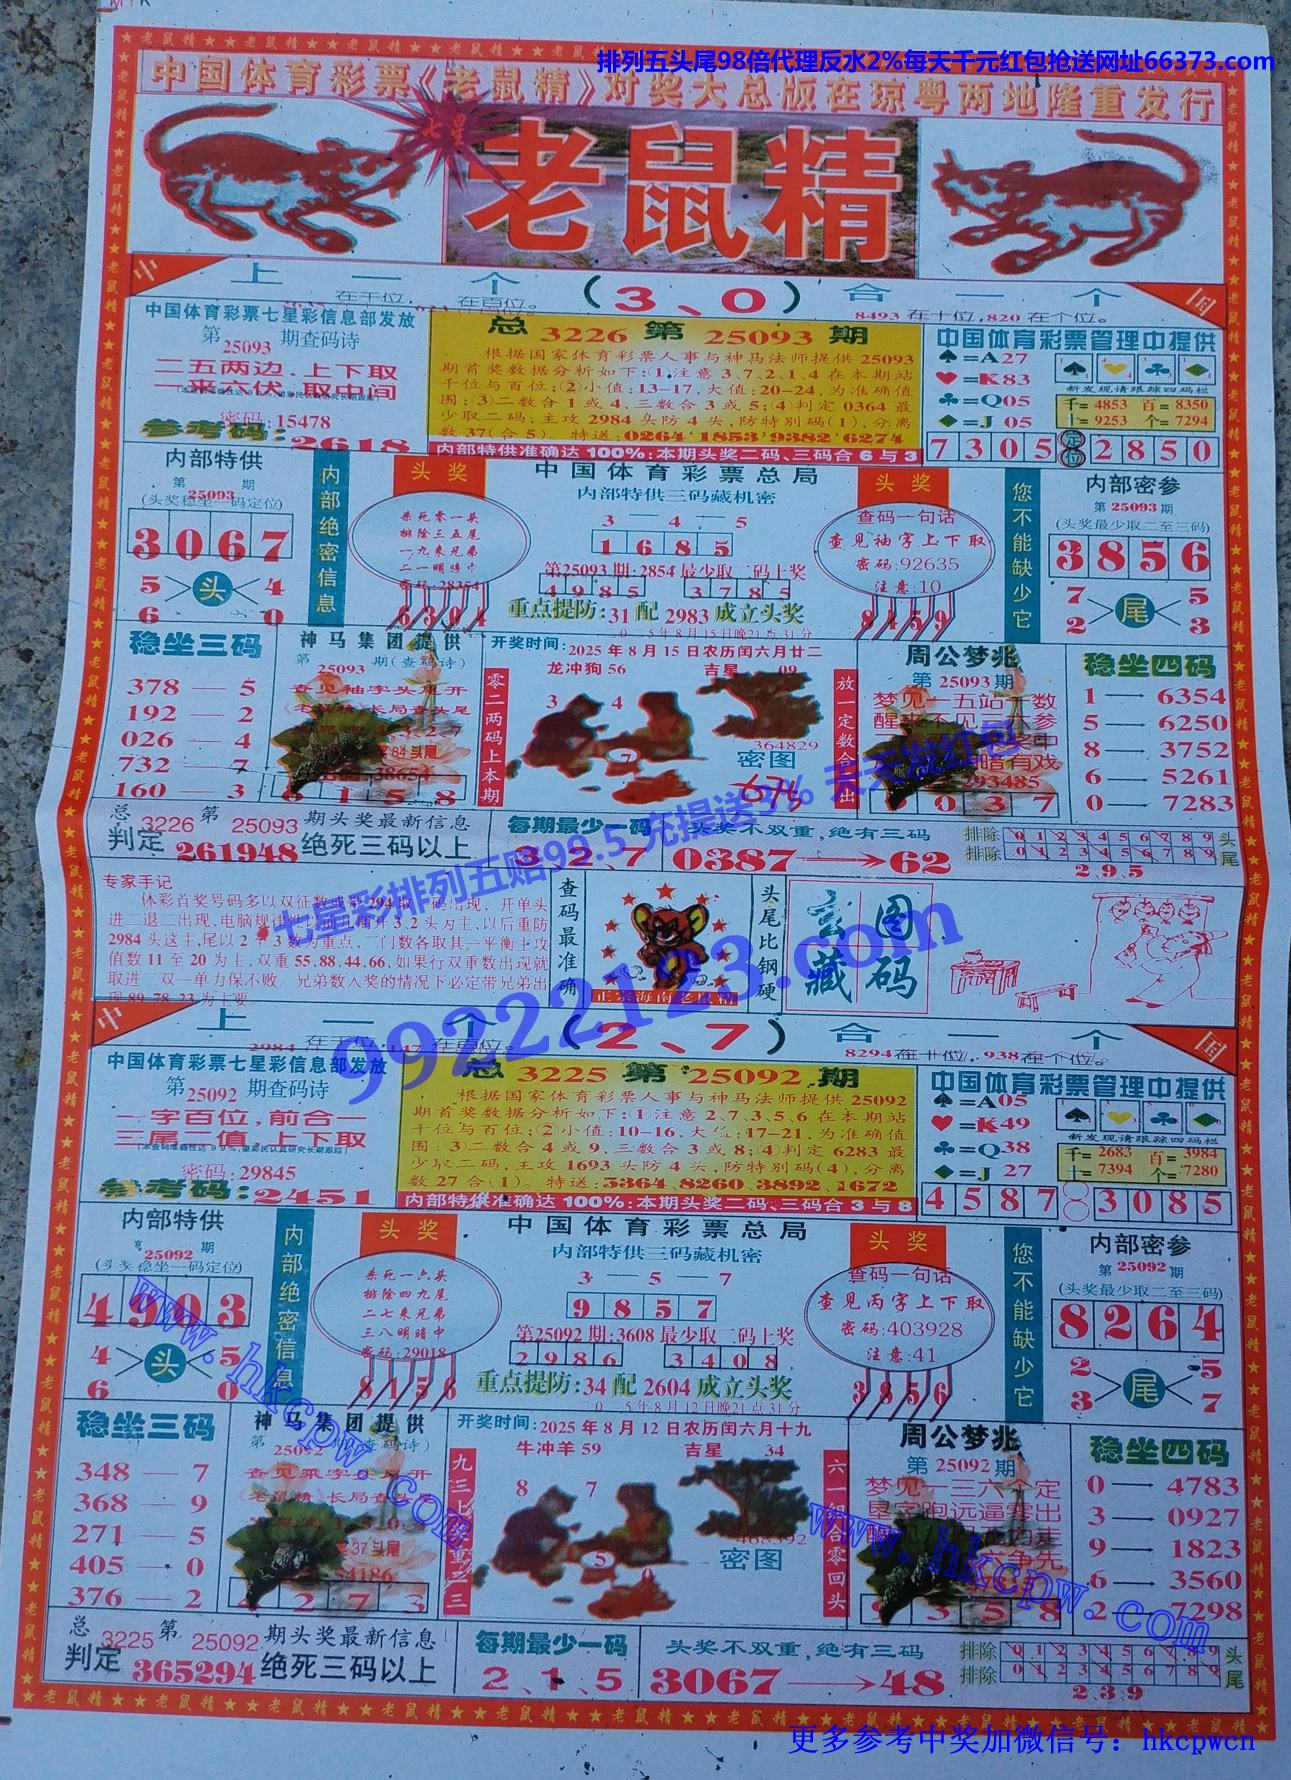 排列五头尾98倍代理反水2%每天千元红包抢送网址66373.com
中国体育彩票《老鼠精》对奖大总版在琼粤两地隆重发行
七星
老鼠精
中
上一个(3、0)合一个
国
在千位, 在百位。
8493在十位,820在个位。
中国体育彩票七星彩信息部发放
第25093期查码诗
二五两边.上下取
一来六伏.取中间
密码:15478
参考码:2618
总3226第25093期
根据国家体育彩票人事与神马法师提供25093
期首奖数据分析如下:(1.注意3,7,2,1,4在本期站
千位与百位;(2)小值:13-17,大值:20-24,为准确值
围;3)二数合1或4,三数合3或5;(4)判定0364最
少取二码;主攻2984头防4头,防特别码(1),分离
数37(合5)。特送:0264 1853 9382 6274
内部特供准确达100%:本期头奖二码、三码合6与3
中国体育彩票管理中提供
♠=A27
♥=K83
♣=Q05
♦=J 05
新发现请跟踪四码栏
千=4853 百=8350
十=9253 个=7294
7305 定位 2850
内部特供
第25093期
(头奖稳坐一码定位)
3067
5 4
头
6 0
内部绝密信息
头奖
杀死零一头
排除三五尾
一九来兄弟
二一明暗中
密码:28354
6394
中国体育彩票总局
内部特供三码藏机密
3—4—5
1685
第25093期:2854最少取二码上奖
4985 3785
重点提防:31配2983成立头奖
头奖
查码一句话
查见袖字上下取
密码:92635
注意:10
8459
您不能缺少它
内部密参
第25093期
(头奖最少取二至三码)
3856
7 5
尾
2 3
稳坐三码
378—5
192—2
026—4
732—7
160—3
神马集团提供
第25093期(查码诗)
查见袖字头尾开
84头尾
38654
6158
开奖时间:2025年8月15日农历闰六月廿二
龙冲狗56 吉星 09
零二两码上本期
3 4
7
364829
密图
675
放一定数合出
周公梦兆
第25093期
梦见一五站一数
醒来不见三六参
293485
037
稳坐四码
1—6354
5—6250
8—3752
6—5261
0—7283
总3226第25093期头奖最新信息
判定261948绝死三码以上
每期最少一码
3、2、7
头奖不双重,绝有三码
0387→62
排除 0 1 2 3 4 5 6 7 8 9 头
排除 0 1 2 3 4 5 6 7 8 9 尾
2.9.5
七星彩排列五赔99.5 充提送3% 天天发红包
99222123.com
专家手记
体彩首奖号码多以双征数或带294取一码出现,开单头
进二退二出现,电脑规律性以前几期开3.2头为主,以后重防
2984头这主,尾以2和3数为重点,二门数各取其一平衡主攻
值数11至20为主,双重55.88.44.66,如果行双重数出现就
取进二双一单力保不败,兄弟数入奖的情况下必定带兄弟出
现89.78.23为主要
查码最准确
正宗海南老鼠精
头尾比钢硬
玄图藏码
中
上一个(2、7)合一个
国
2984在千位,147在百位。
8294在十位,938在个位。
中国体育彩票七星彩信息部发放
第25092期查码诗
一字百位,前合一
三尾二值.上下取
密码:29845
参考码:2451
总3225第25092期
根据国家体育彩票人事与神马法师提供25092
期首奖数据分析如下:(1注意2,7,3,5,6在本期站
千位与百位;(2)小值:10-16,大值:17-21,为准确值
围;3)二数合4或9,三数合3或8;(4)判定6283最
少取二码,主攻1693头防4头,防特别码(4),分离
数27合(1)。特送:5364.8260.3892.1672
内部特供准确达100%:本期头奖二码、三码合3与8
中国体育彩票管理中提供
♠=A05
♥=K49
♣=Q38
♦=J 27
新发现请跟踪四码栏
千=2683 百=3984
十=7394 个=7280
4587 8 3085
内部特供
25092期
(头奖稳坐一码定位)
4903
4 5
头
6 0
内部绝密信息
头奖
杀死一六头
排除四九尾
二七来兄弟
三八明暗中
密码:29018
8156
中国体育彩票总局
内部特供三码藏机密
3—5—7
9857
第25092期:3608最少取二码上奖
2986 3408
重点提防:34配2604成立头奖
头奖
查码一句话
查见丙字上下取
密码:403928
注意:41
3856
您不能缺少它
内部密参
第25092期
(头奖最少取二至三码)
8264
2 5
尾
3 7
稳坐三码
348—7
368—9
271—5
405—0
376—2
神马集团提供
第25092期(查码诗)
37头尾
54186
4273
开奖时间:2025年8月12日农历闰六月十九
牛冲羊59 吉星 34
8 7
5
468392
密图
六一组合零回头
周公梦兆
第25092期
梦见一三六一定
358
稳坐四码
0—4783
3—0927
9—1823
6—3560
2—7298
总3225第25092期头奖最新信息
判定365294绝死三码以上
每期最少一码
2、1、5
头奖不双重,绝有三码
3067→48
排除 0 1 2 3 4 5 6 7 8 9 头
排除 0 1 2 3 4 5 6 7 8 9 尾
2.3.9
www.hkcpw.com
www.hkcpw.com
更多参考中奖加微信号：hkcpwcn